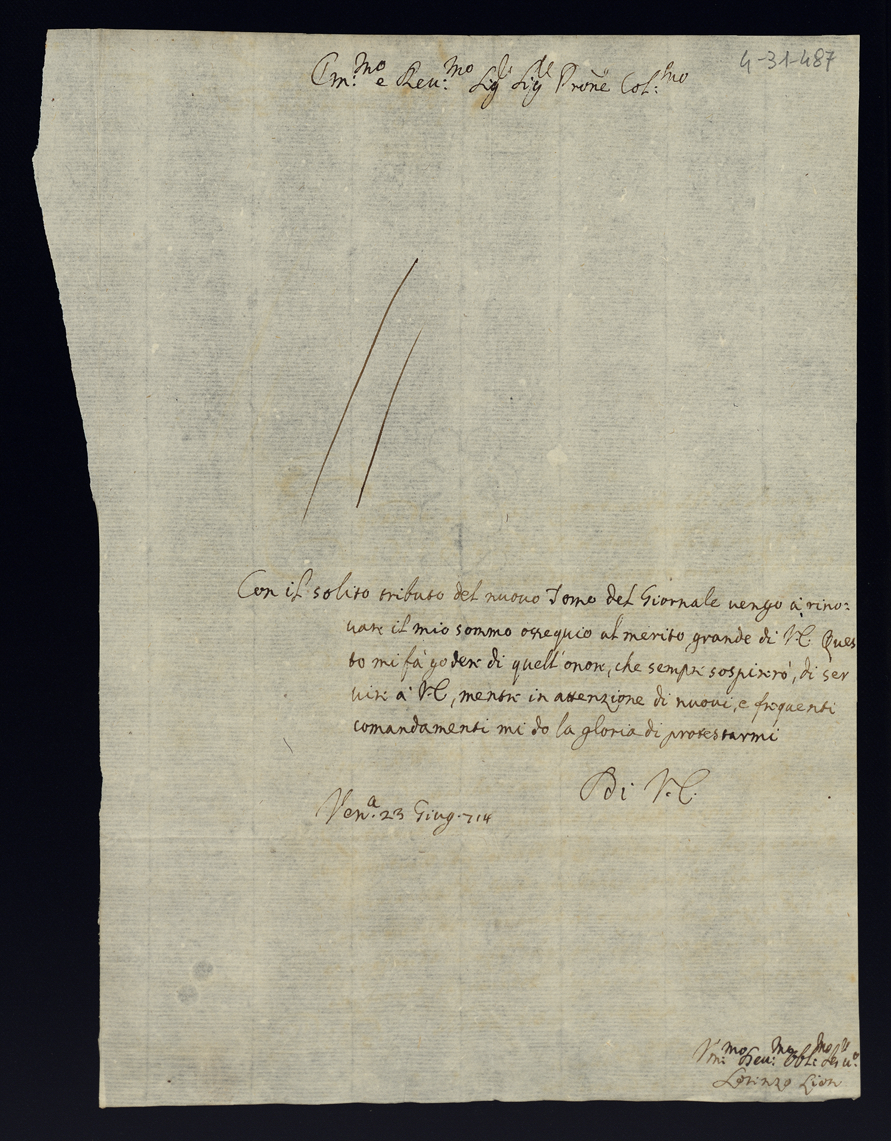 4-31-487
Em.mo e Reu.mo Sig.r Sig.r Prone Col.mo
Con il solito tributo del nuovo Tomo del Giornale uengo à rino:
uare il mio sommo ossequio al merito grande di V.E. Ques
to mi fà godere di quell'onore, che sempre sospirerò, di ser
uire à V.E, mentre in attenzione di nuovi, e frequenti
comandamenti mi do la gloria di protestarmi
Di V.E.
Ven.a 23 Giug. 714
Vm.mo Deu.mo Obl.mo Ser.u
Lorenzo Lion